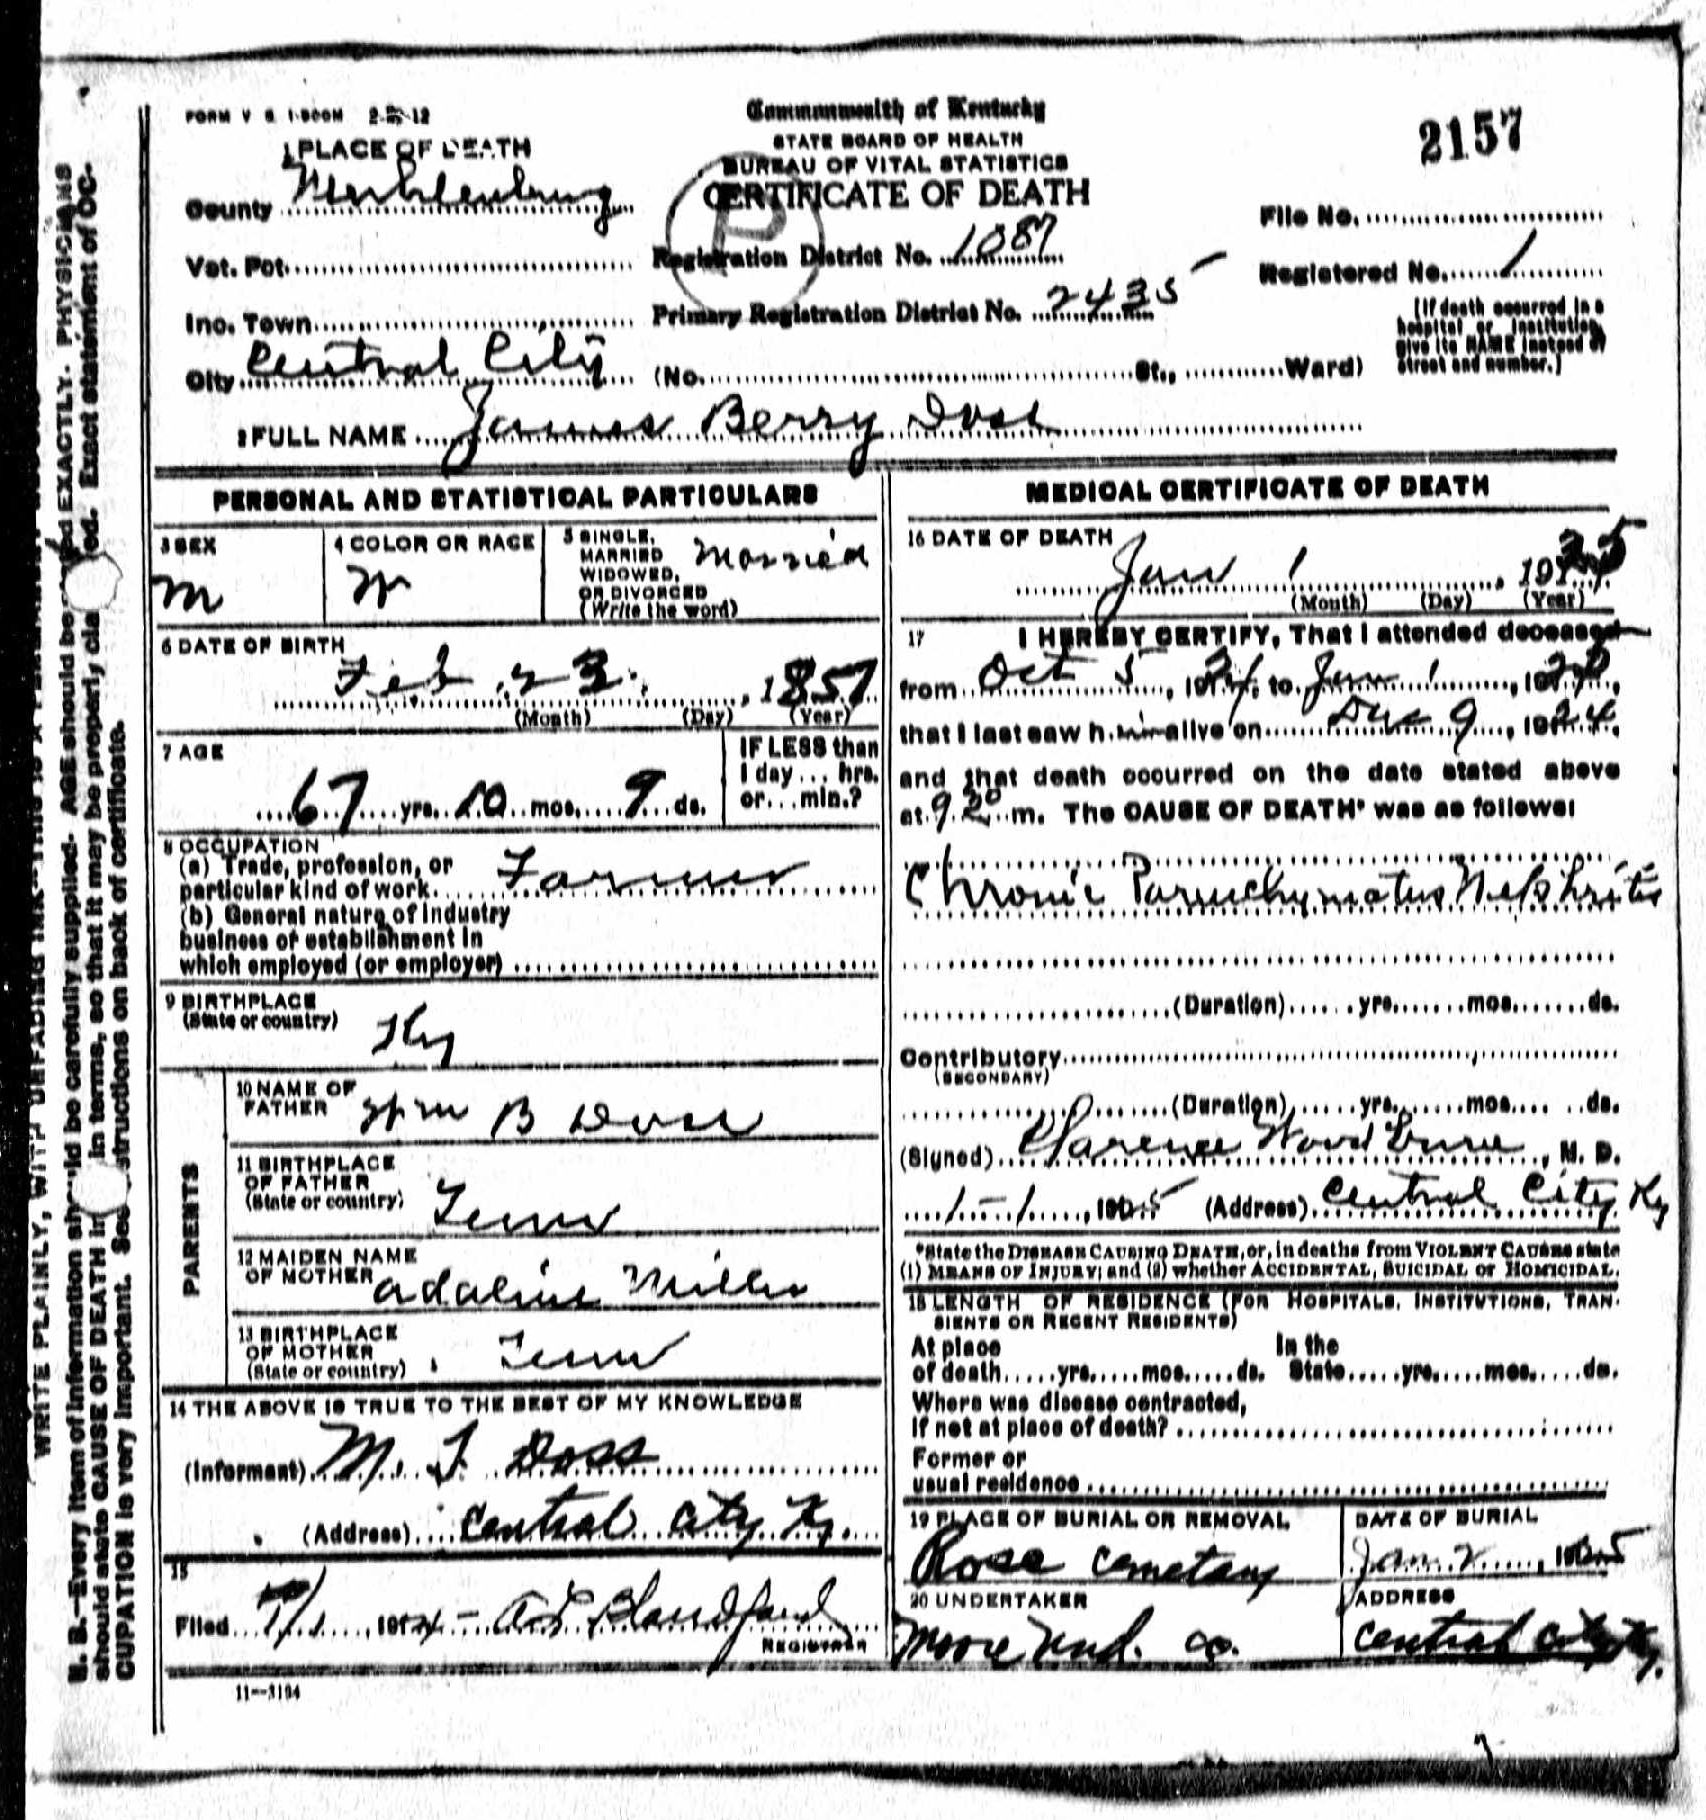 FORM V S 1-500M 2-21-12
Commonwealth of Kentucky
STATE BOARD OF HEALTH
BUREAU OF VITAL STATISTICS
CERTIFICATE OF DEATH
2157
1 PLACE OF DEATH
County Muhlenburg
Vot. Pot.
Inc. Town
City Central City (No. St., Ward)
Registration District No. 1087
Primary Registration District No. 2435
File No.
Registered No. 1
(If death occurred in a
hospital or institution,
give its NAME instead of
street and number.)
2 FULL NAME James Berry Doss
PERSONAL AND STATISTICAL PARTICULARS
3 SEX
M
4 COLOR OR RACE
W
5 SINGLE,
MARRIED
WIDOWED,
OR DIVORCED
(Write the word)
Married
6 DATE OF BIRTH
Feb 23, 1857
(Month) (Day) (Year)
7 AGE
67 yrs. 10 mos. 9 ds.
IF LESS than
1 day... hrs.
or... min.?
8 OCCUPATION
(a) Trade, profession, or
particular kind of work. Farmer
(b) General nature of industry
business or establishment in
which employed (or employer)
9 BIRTHPLACE
(State or country) Ky
PARENTS
10 NAME OF
FATHER Wm B Doss
11 BIRTHPLACE
OF FATHER
(State or country) Tenn
12 MAIDEN NAME
OF MOTHER Adaline Miller
13 BIRTHPLACE
OF MOTHER
(State or country) Tenn
14 THE ABOVE IS TRUE TO THE BEST OF MY KNOWLEDGE
(Informant) M. F. Doss
(Address) Central City Ky.
15
Filed 1/1, 1924 - Blandford
REGISTRAR
11--3194
MEDICAL CERTIFICATE OF DEATH
16 DATE OF DEATH
Jan 1, 1925
(Month) (Day) (Year)
17 I HEREBY CERTIFY, That I attended deceased
from Oct 5, 1924, to Jan 1, 19
that I last saw h im alive on Dec 9, 1924,
and that death occurred on the date stated above
at 9 20 m. The CAUSE OF DEATH* was as follows:
Chronic Parenchymatus Nephritis
(Duration) yrs. mos. ds.
Contributory
(SECONDARY)
(Duration) yrs. mos. ds.
(Signed) Clarence Woodburne, M. D.
1-1, 1925 (Address) Central City Ky
*State the DISEASE CAUSING DEATH, or, in deaths from VIOLENT CAUSES state
(1) MEANS OF INJURY; and (2) whether ACCIDENTAL, SUICIDAL or HOMICIDAL.
18 LENGTH OF RESIDENCE (FOR HOSPITALS, INSTITUTIONS, TRAN-
SIENTS OR RECENT RESIDENTS)
At place In the
of death yrs. mos. ds. State yrs. mos. ds.
Where was disease contracted,
If not at place of death?
Former or
usual residence
19 PLACE OF BURIAL OR REMOVAL
Rose Cemetary
DATE OF BURIAL
Jan. 2, 1925
20 UNDERTAKER
Moore Und. Co.
ADDRESS
Central City Ky.
WRITE PLAINLY, WITH UNFADING INK--THIS IS A PERMANENT
N. B.--Every item of information should be carefully supplied. AGE should be EXACTLY. PHYSICIANS
should state CAUSE OF DEATH in terms, so that it may be properly cla ed. Exact statement of OC-
CUPATION is very important. See structions on back of certificate.